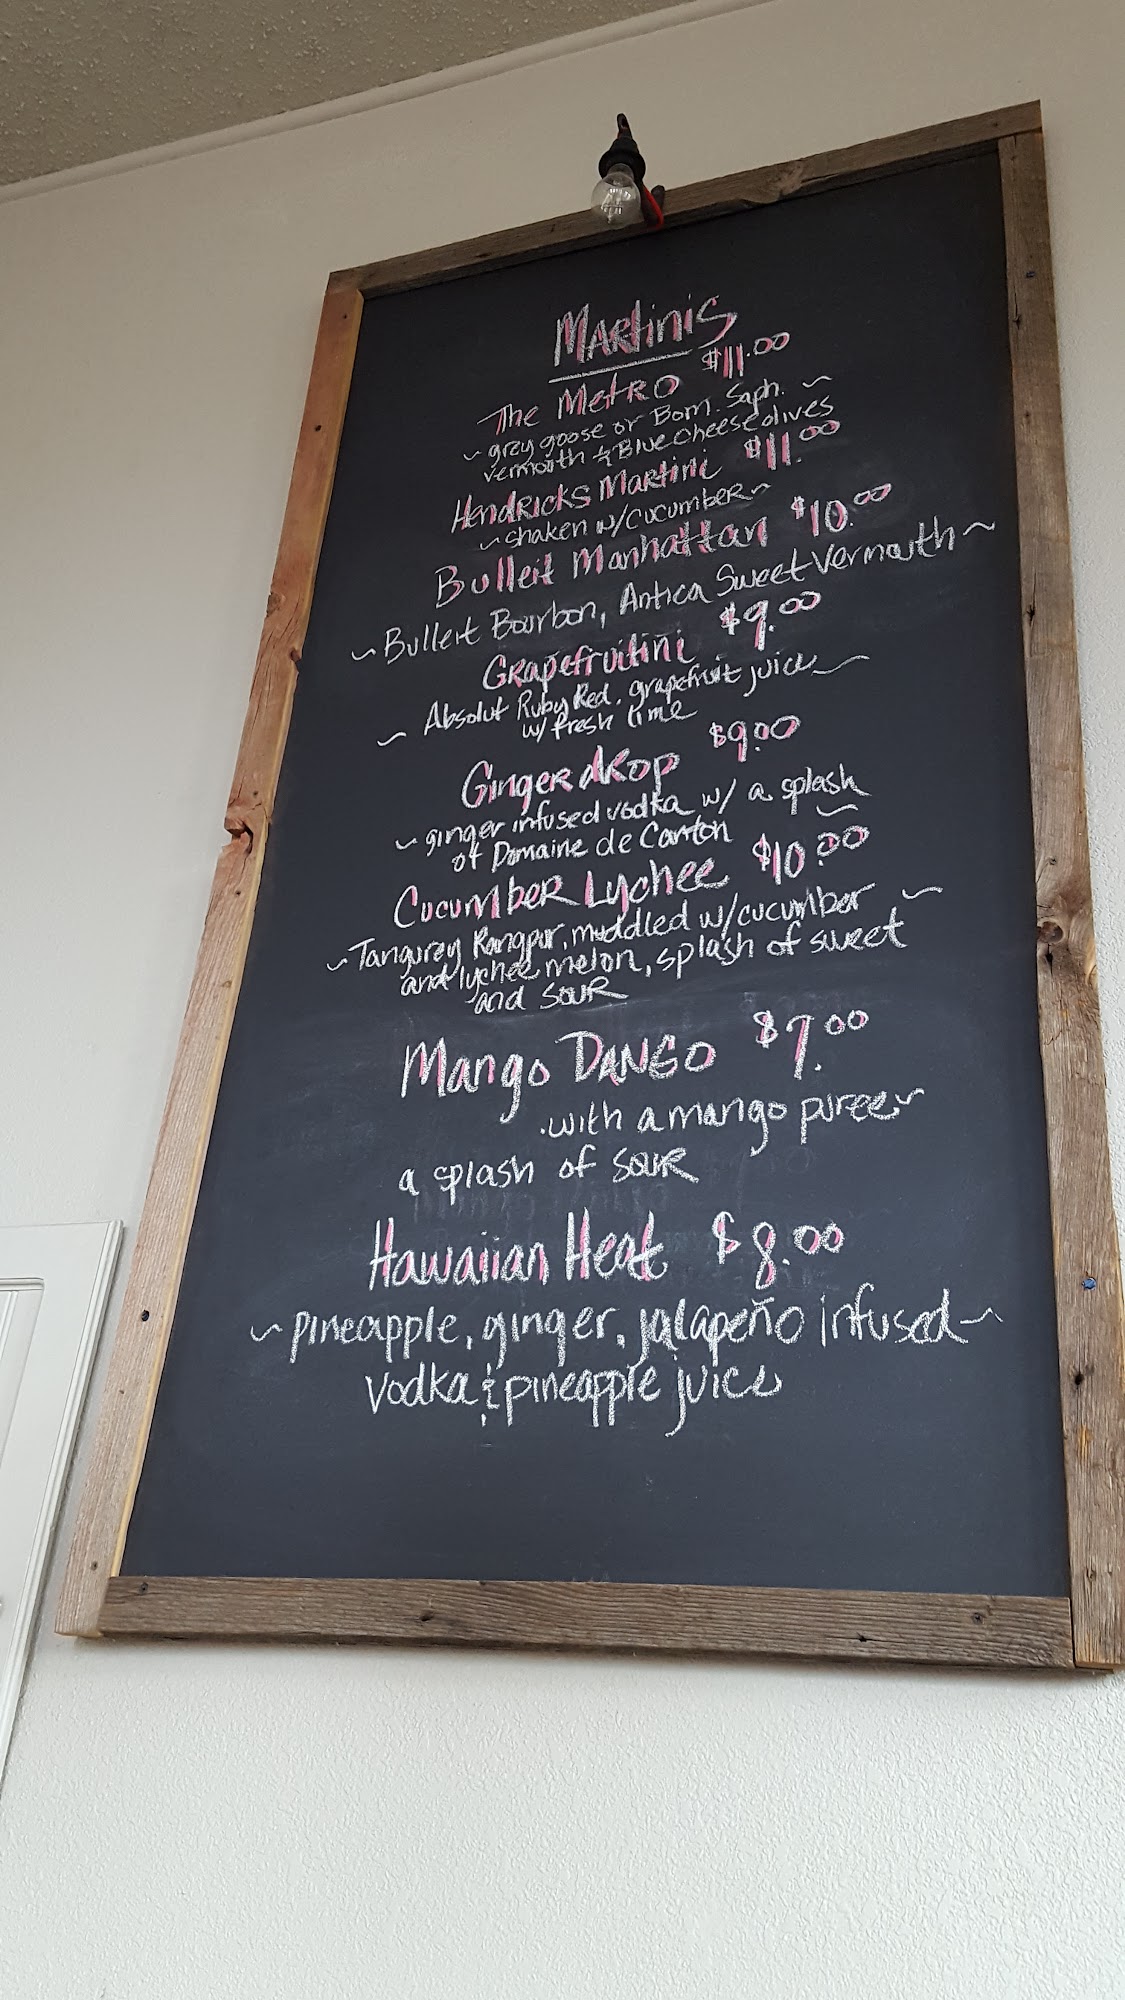 Martinis
The Metro $11.00
~ grey goose or Bom. Saph. ~
vermouth & Blue Cheese olives
Hendricks Martini $11.00
~ shaken w/cucumber ~
Bulleit Manhattan $10.00
~ Bulleit Bourbon, Antica Sweet Vermouth ~
Grapefruitini $9.00
~ Absolut Ruby Red. grapefruit juice ~
w/ fresh lime
Ginger drop $9.00
~ ginger infused vodka w/ a splash
of Domaine de Canton ~
Cucumber Lychee $10.00
~ Tanqurey Rangpur, muddled w/cucumber ~
and lychee melon, splash of sweet
and sour
Mango DANGO $7.00
.with a mango puree ~
a splash of sour
Hawaiian Heat $8.00
~ pineapple, ginger, jalapeño infused ~
vodka & pineapple juice